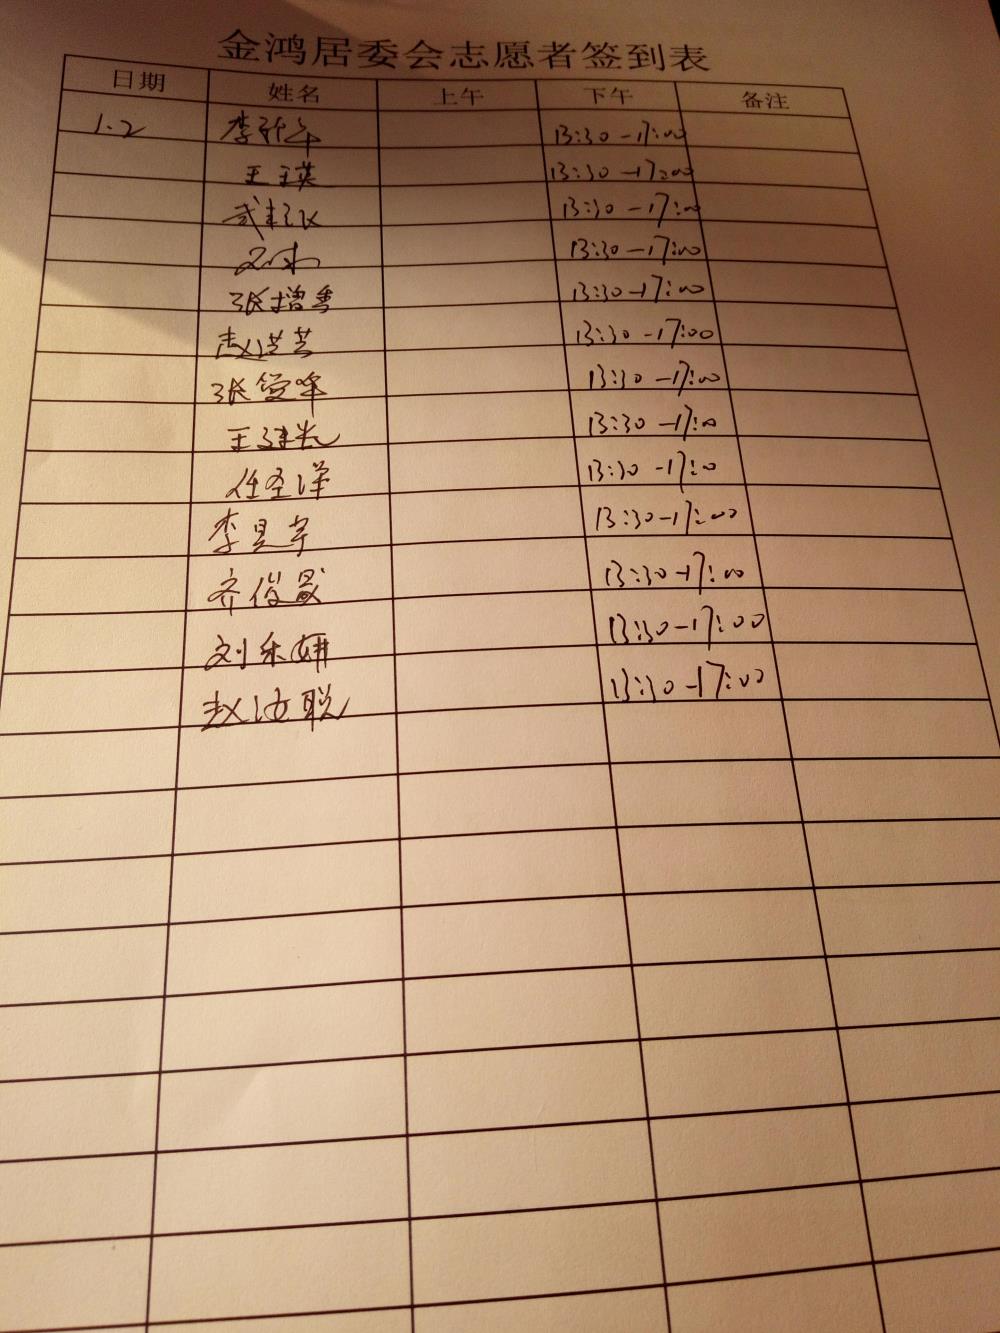 金鸿居委会志愿者签到表
日期 姓名 上午 下午 备注
1.2 李 13:30-17:00
王玉英 13:30-17:00
武 13:30-17:00
13:30-17:00
张增香 13:30-17:00
赵洪芸 13:30-17:00
张 峰 13:30-17:00
王建光 13:30-17:00
任圣洋 13:30-17:0
李昊宇 13:30-17:00
齐俊晟 13:30-17:00
刘乐妍 13:30-17:00
赵汝聪 13:30-17:00